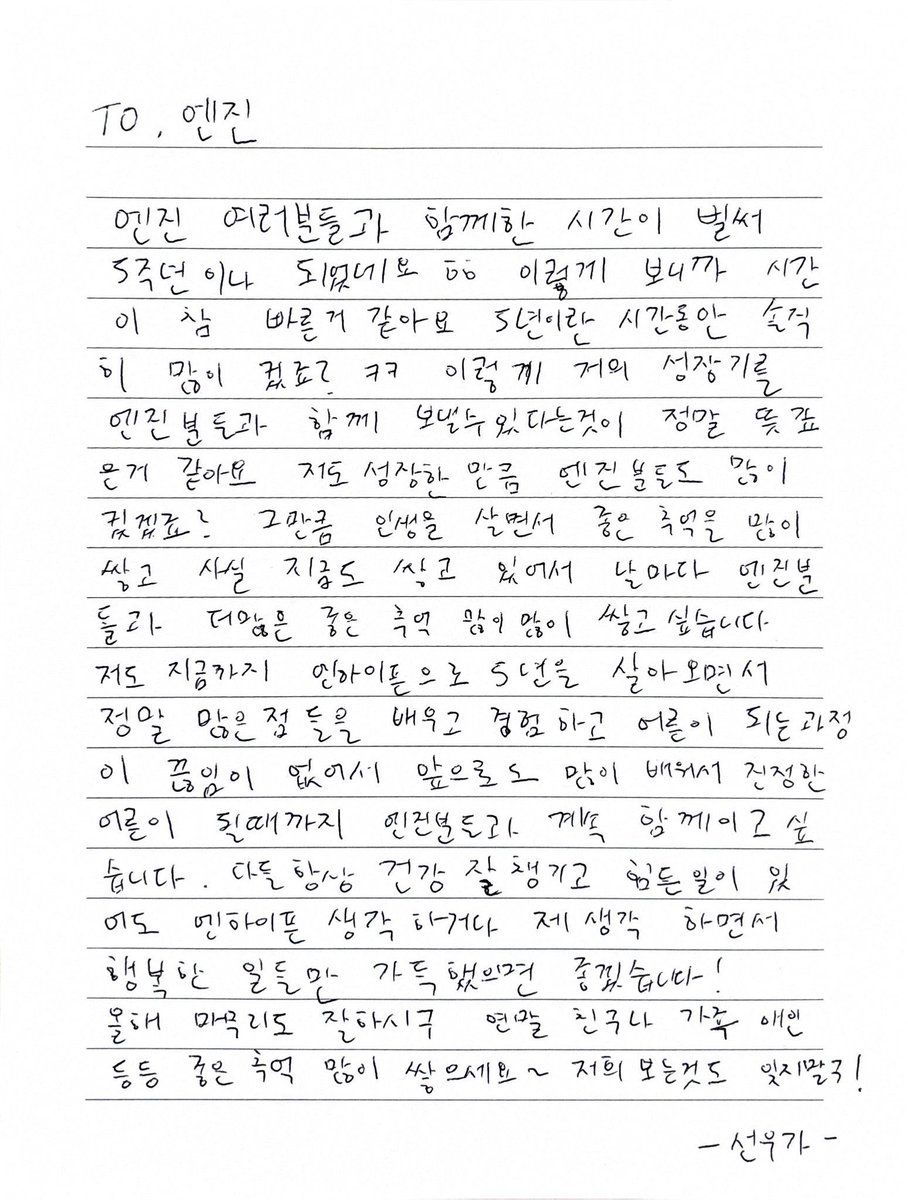 TO. 엔진
엔진 여러분들과 함께한 시간이 벌써
5주년이나 되었네요 ㅎㅎ 이렇게 보니까 시간
이 참 빠른거 같아요 5년이란 시간동안 솔직
히 많이 컸죠? ㅋㅋ 이렇게 거의 성장기를
엔진분들과 함께 보낼수있다는것이 정말 뜻깊
은거 같아요 저도 성장한 만큼 엔진분들도 많이
컸겠죠? 그만큼 인생을 살면서 좋은 추억을 많이
쌓고 사실 지금도 쌓고 있어서 날마다 엔진분
들과 더많은 좋은 추억 많이많이 쌓고싶습니다
저도 지금까지 엔하이픈으로 5년을 살아오면서
정말 많은점들을 배우고 경험하고 어른이 되는과정
이 끊임이 없어서 앞으로도 많이 배워서 진정한
어른이 될때까지 엔진분들과 계속 함께이고싶
습니다. 다들항상 건강 잘챙기고 힘든일이 있
어도 엔하이픈 생각하거다 제생각 하면서
행복한 일들만 가득했으면 좋겠습니다!
올해 마무리도 잘하시구 연말 친구나 가족 애인
등등 좋은추억 많이 쌓으세요~ 저희보는것도 잊지말구!
- 선우가 -